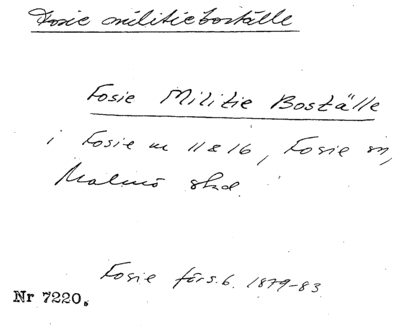 Fosie militieboställe
Fosie Militie Boställe
i Fosie nr 11 & 16, Fosie sn,
Malmö stad.
Fosie förs.b. 1879-83
Nr 7220.